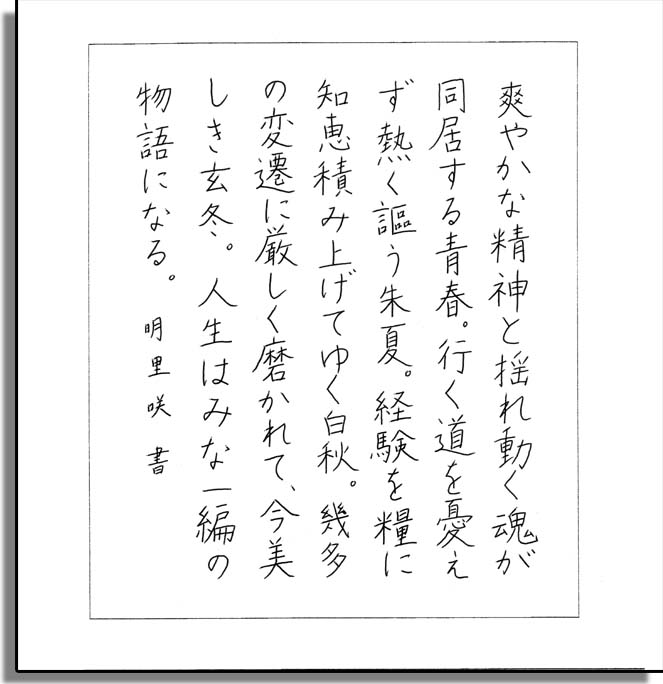 爽やかな精神と揺れ動く魂が
同居する青春。行く道を憂え
ず熱く謳う朱夏。経験を糧に
知恵積み上げてゆく白秋。幾多
の変遷に厳しく磨かれて、今美
しき玄冬。人生はみな一編の
物語になる。 明里咲 書